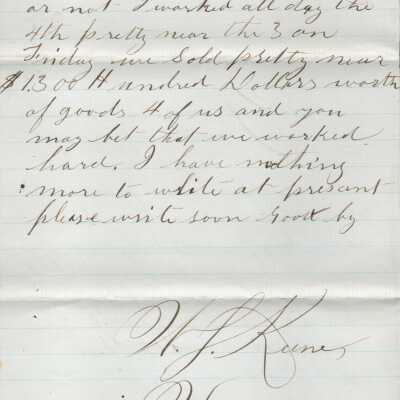 or not I worked all day the
4th pretty near the 3 on
Friday we Sold pretty near
$1300 Hundred Dollars worth
of goods 4 of us and you
may bet that we worked
hard. I have nothing
more to write at present
please write soon Good by
W. J. Kune